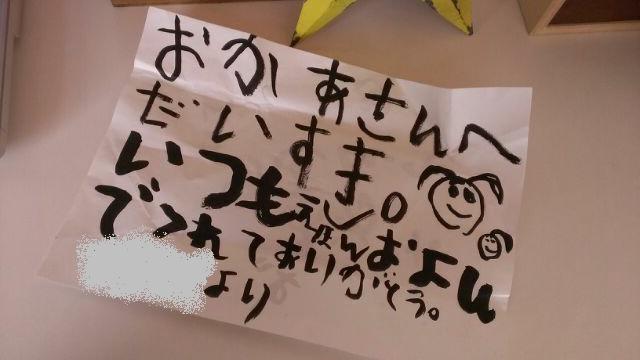 おかあさんへ
だいすき。
いつもえほんおよん
でくれてありがとう。
より